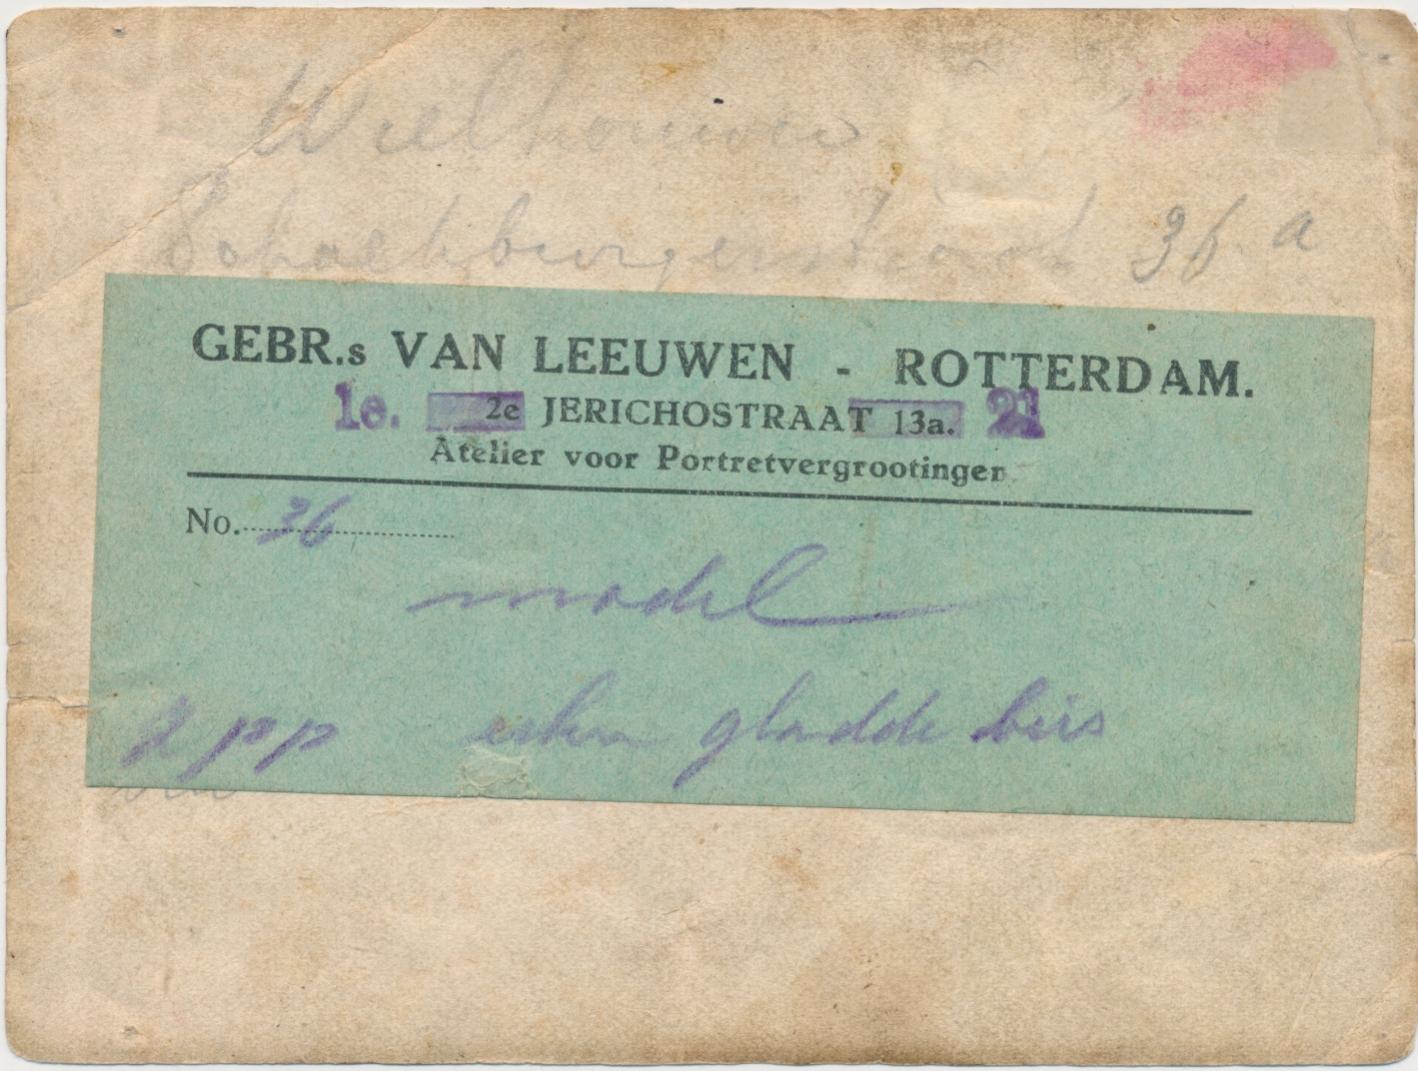 Wielhouwer
36 a
GEBR.s VAN LEEUWEN - ROTTERDAM.
1e. 2e JERICHOSTRAAT 13a. 21
Atelier voor Portretvergrootingen
No. 36
model
2 pp gladde